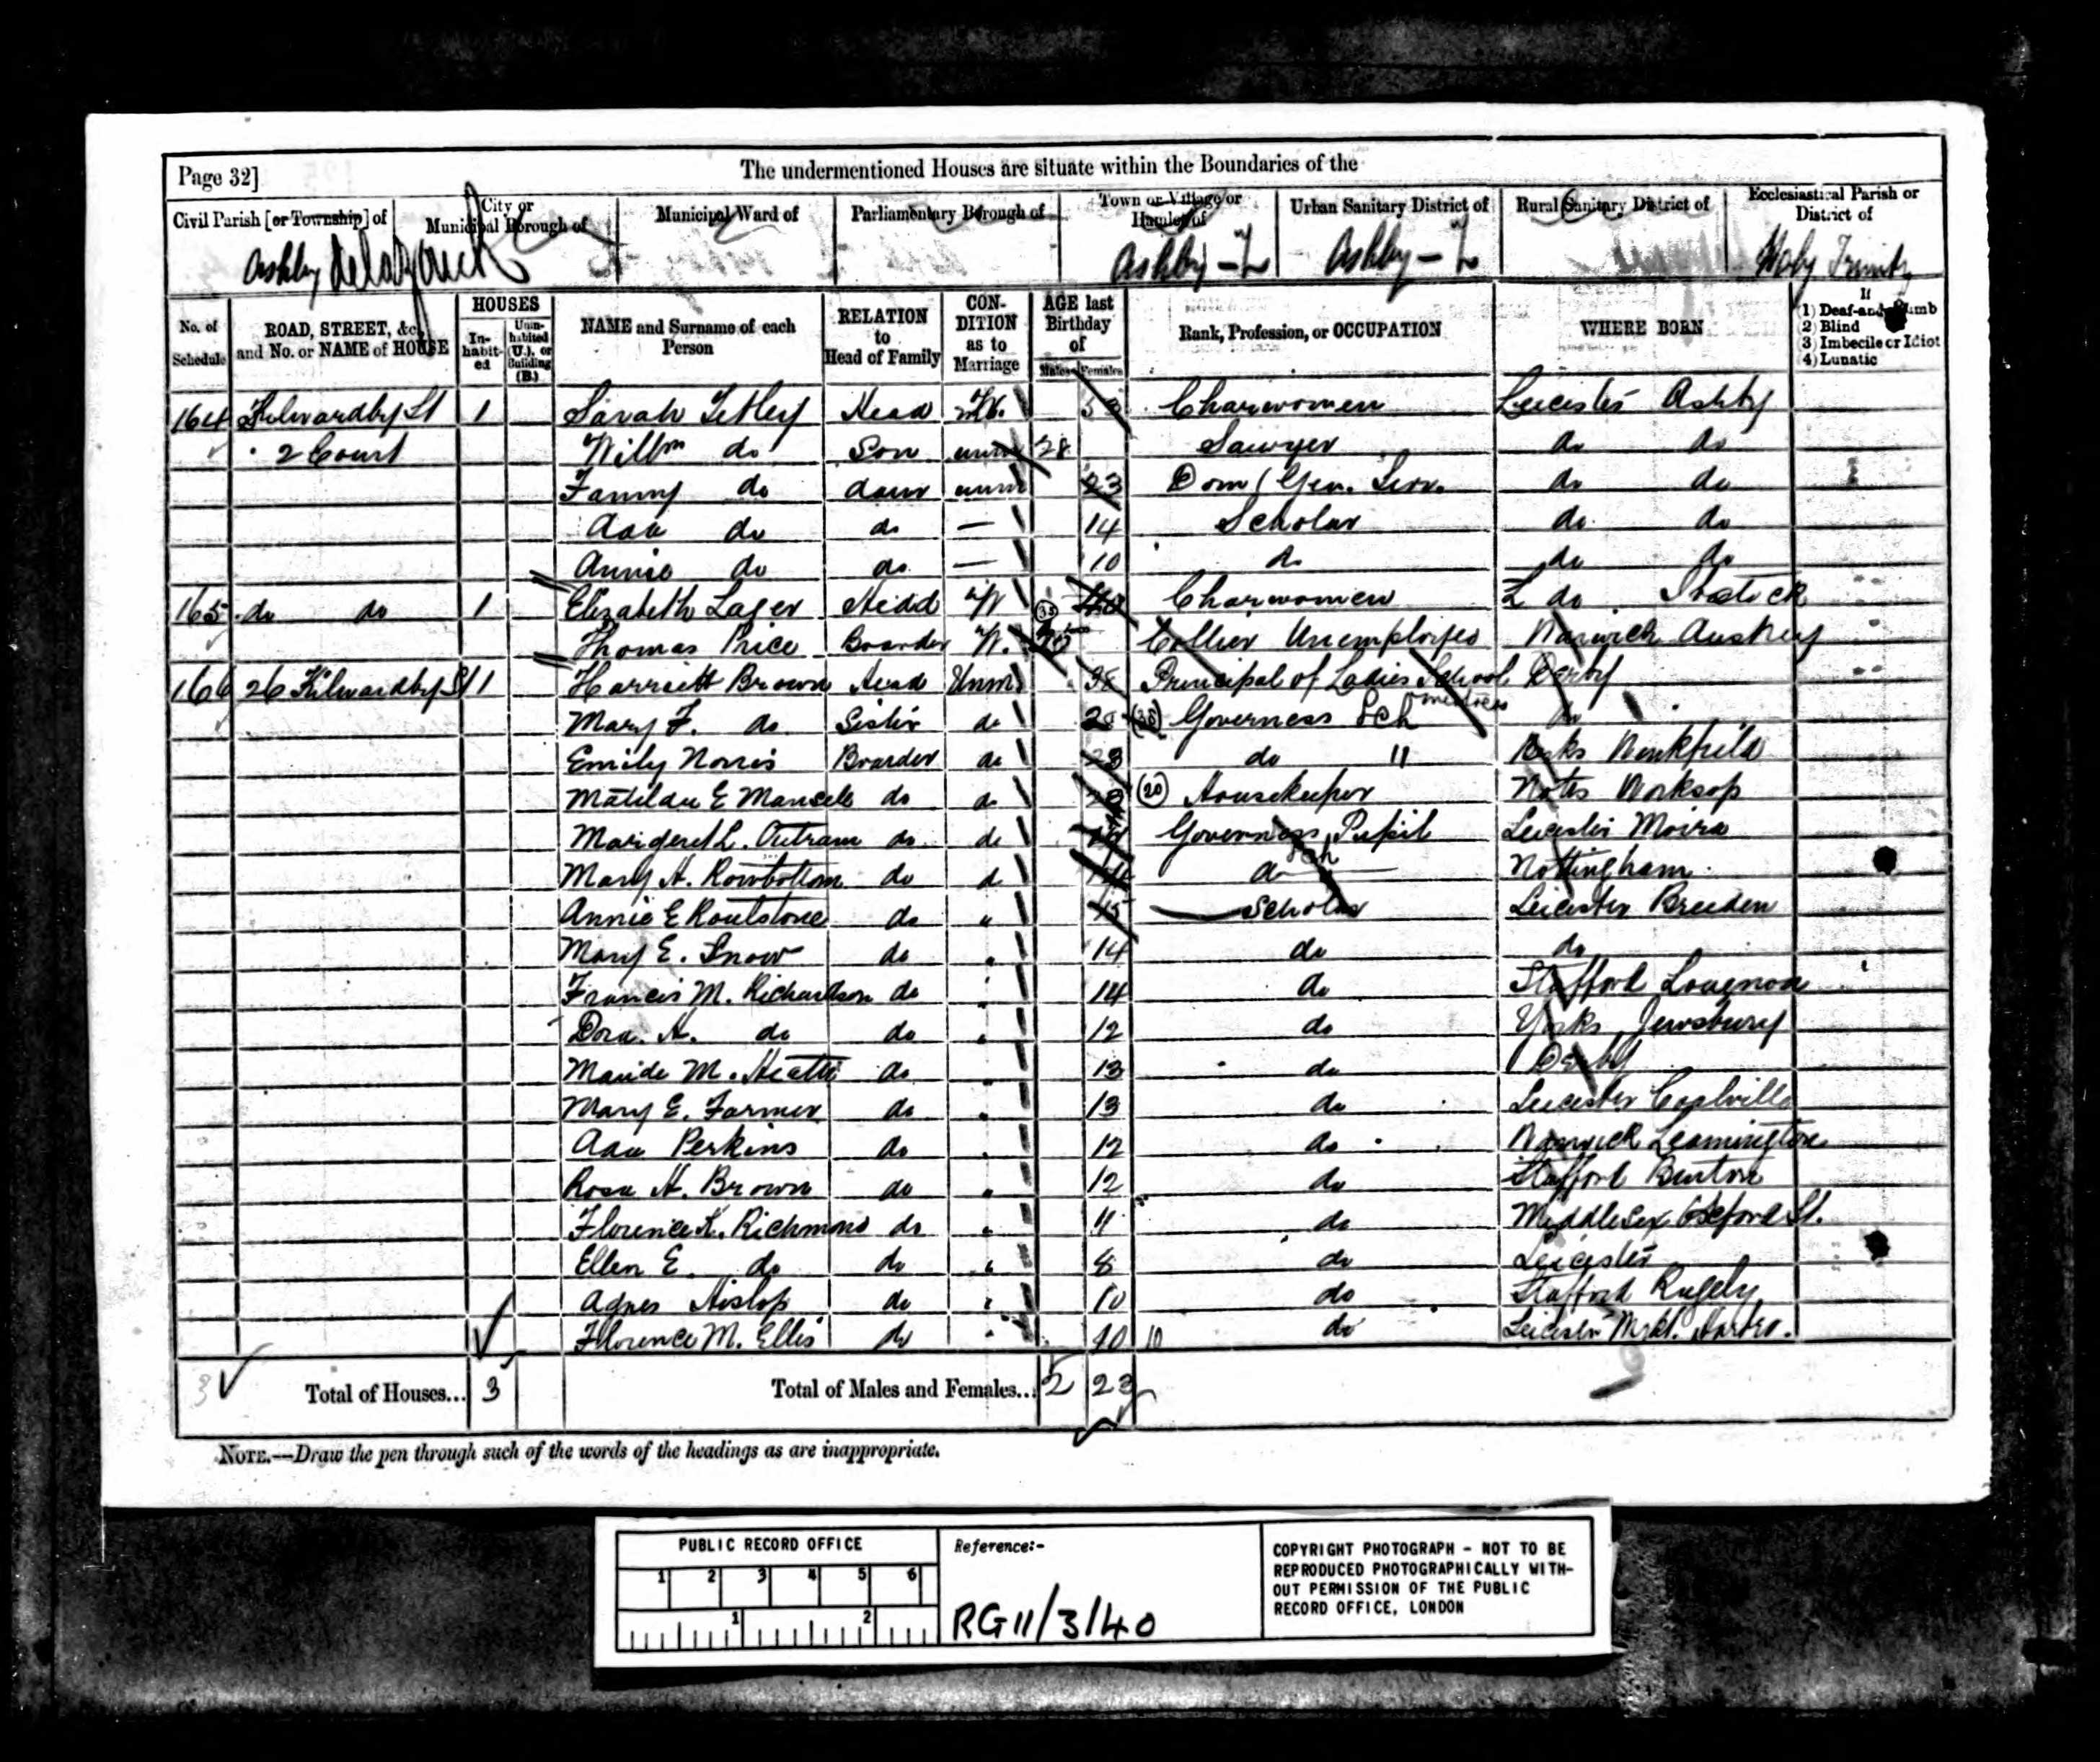 Page 32]
The undermentioned Houses are situate within the Boundaries of the
Civil Parish [or Township] of
City or Municipal Borough of
Municipal Ward of
Parliamentary Borough of
Town or Village or Hamlet of
Urban Sanitary District of
Rural Sanitary District of
Ecclesiastical Parish or District of
Ashby de la Zouch
Ashby - Z
Ashby - Z
Holy Trinity
No. of Schedule
ROAD, STREET, &c., and No. or NAME of HOUSE
HOUSES
In-habit-ed
Unin-habited (U.), or Building (B.)
NAME and Surname of each Person
RELATION to Head of Family
CON-DITION as to Marriage
AGE last Birthday of
Males
Females
Rank, Profession, or OCCUPATION
WHERE BORN
If
1) Deaf-and-Dumb
2) Blind
3) Imbecile or Idiot
4) Lunatic
164 Kilwardby St 1 Sarah Tetley Head Charwomen Leicester Ashby
2 Court Willm do Son unm 28 Sawyer do do
Fanny do daur unm 23 Dom (Gen. Serv. do do
Ada do do — 14 Scholar do do
Annie do do — 10 do do do
165 do do 1 Elizabeth Lager Head W Charwomen L do Ibstock
Thomas Price Boarder W. (35) Collier Unemployed Warwick Austrey
166 26 Kilwardby St 1 Harriett Brown Head Unm 38 Principal of Ladies School Derby
Mary F. do Sister do 28 Governess Sch do
Emily Norris Boarder do 23 do " Berks Winkfield
Matilda E Mansell do do (20) Housekeeper Notts Worksop
Margeret L. Outram do do Governess Pupil Leicester Moira
Mary A. Rowbottom do do do Sch Nottingham
Annie E Roulstone do " 15 Scholar Leicester Breedon
Mary E. Snow do " 14 do do
Francis M. Richardson do " 14 do Stafford Longnor
Dora A. do do " 12 do Yorks Jewsbury
Maude M. Heath do " 13 do Derby
Mary E. Farmer do " 13 do Leicester Coalville
Ada Perkins do " 12 do Warwick Leamington
Rosa H. Brown do " 12 do Stafford Burton
Florence K. Richmond do " 11 do Middlesex Oxford St.
Ellen E. do do " 8 do Leicester
Agnes Hislop do " 10 do Stafford Rugely
Florence M. Ellis do " 10 10 do Leicester Mrkt. Harbro.
3 Total of Houses... 3 Total of Males and Females... 2 23
NOTE.—Draw the pen through such of the words of the headings as are inappropriate.
PUBLIC RECORD OFFICE
1 2 3 4 5 6
1 2
Reference:-
RG11/3140
COPYRIGHT PHOTOGRAPH - NOT TO BE
REPRODUCED PHOTOGRAPHICALLY WITH-
OUT PERMISSION OF THE PUBLIC
RECORD OFFICE, LONDON